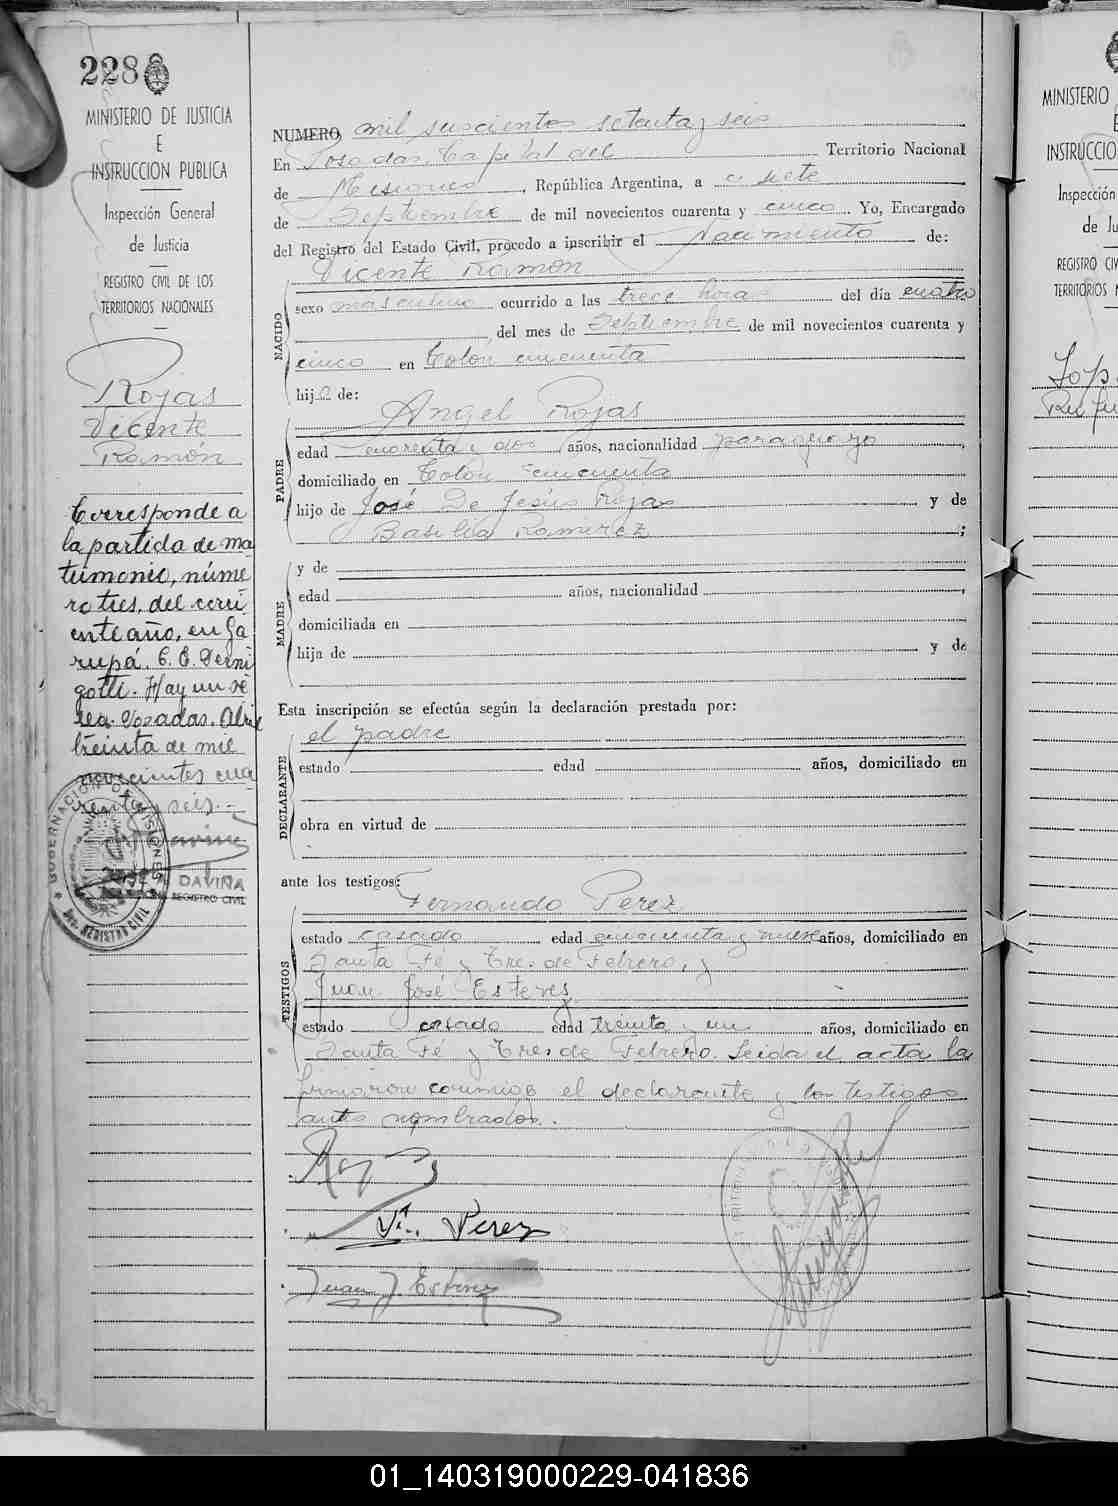 228
MINISTERIO DE JUSTICIA
E
INSTRUCCION PUBLICA
Inspección General
de Justicia
REGISTRO CIVIL DE LOS
TERRITORIOS NACIONALES
Rojas
Vicente
Ramón
Corresponde a
la partida de ma
trimonio, núme
ro tres, del corri
ente año, en Ga
rupá. C. E. Perni
gotti. Hay un se
llo. Posadas. Abril
treinta de mil
novecientos cua
renta y seis.-
GOBERNACION DE MISIONES
REGISTRO CIVIL
DAVIÑA
REGISTRO CIVIL
NUMERO mil seiscientos setenta y seis
En Posadas, Capital del Territorio Nacional
de Misiones, República Argentina, a siete
de Septiembre de mil novecientos cuarenta y cinco. Yo, Encargado
del Registro del Estado Civil, procedo a inscribir el Nacimiento de:
Vicente Ramón
NACIDO
sexo masculino ocurrido a las trece horas del día cuatro
del mes de Septiembre de mil novecientos cuarenta y
cinco en Colón cincuenta
hijo de:
PADRE
Angel Rojas
edad cuarenta y dos años, nacionalidad paraguayo,
domiciliado en Colón cincuenta
hijo de José De Jesús Rojas y de
Basilia Ramirez;
MADRE
y de
edad años, nacionalidad,
domiciliada en
hija de y de
Esta inscripción se efectúa según la declaración prestada por:
DECLARANTE
el padre
estado edad años, domiciliado en
obra en virtud de
ante los testigos:
TESTIGOS
Fernando Perez
estado casado edad cincuenta y nueve años, domiciliado en
Santa Fé y Tres de Febrero, y
Juan José Esteves
estado casado edad treinta y un años, domiciliado en
Santa Fé y Tres de Febrero. Leida el acta la
firmaron conmigo el declarante y los testigos
antes nombrados.
Rojas
Perez
Juan J. Esteves
MINISTERIO
INSTRUCCIO
Inspección
de Ju
REGISTRO CIV
TERRITORIOS N
Lop
01_140319000229-041836